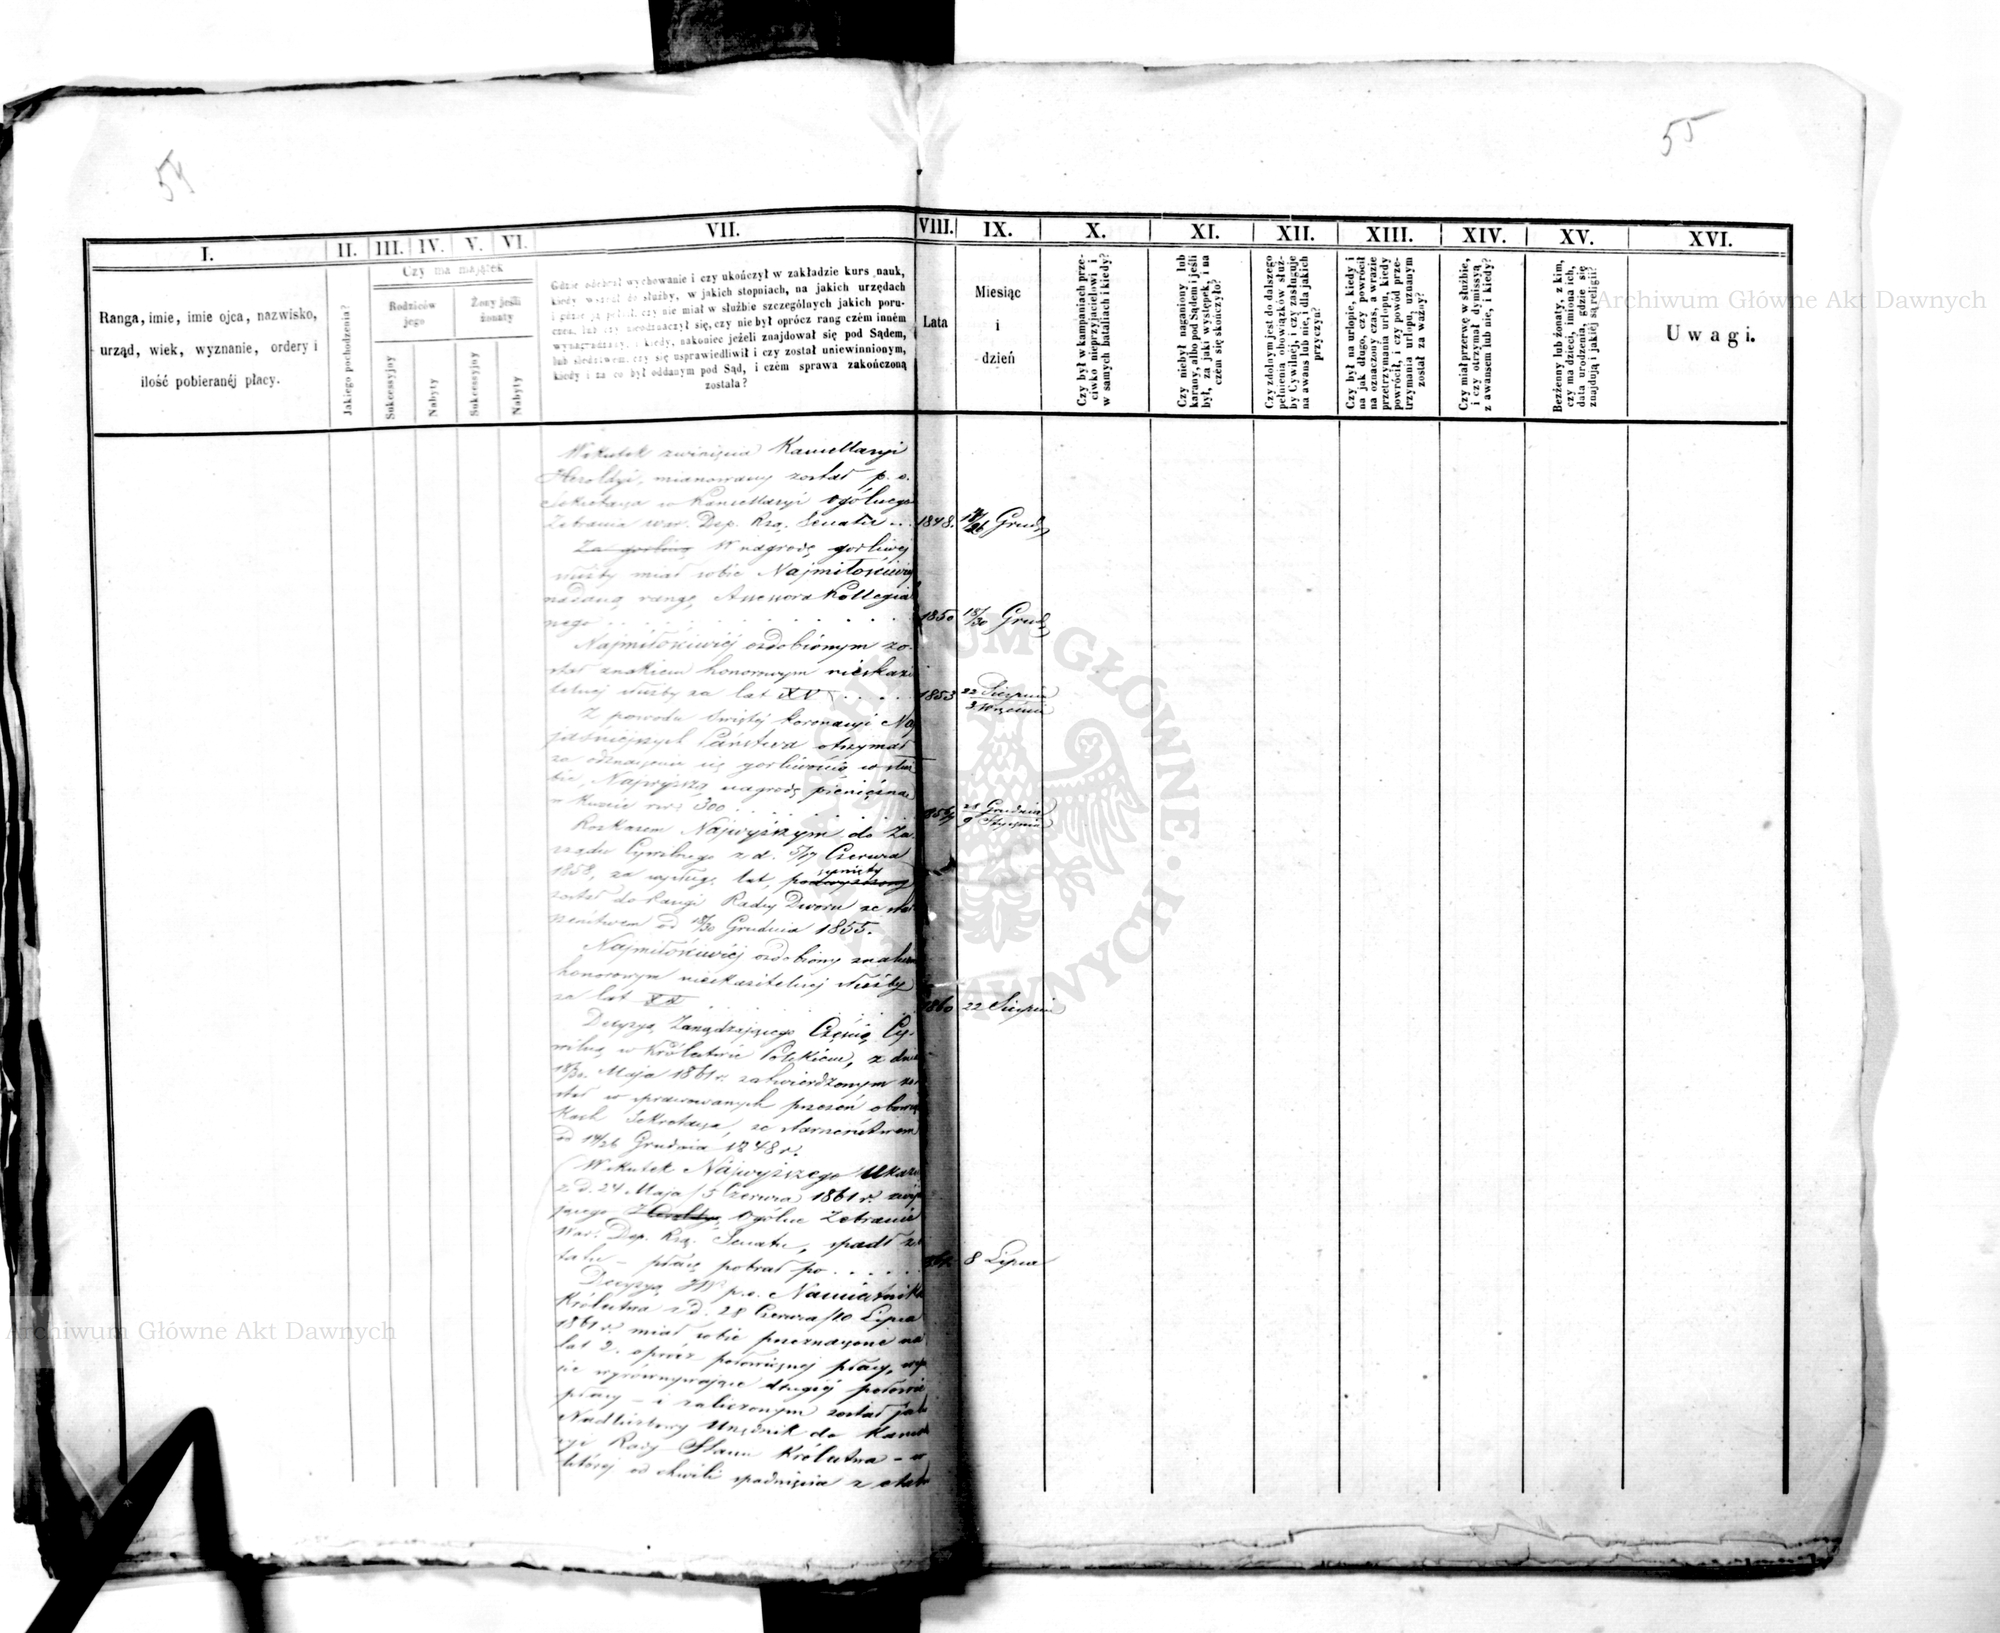 54
55
I.
II.
III.
IV.
V.
VI.
VII.
VIII.
IX.
X.
XI.
XII.
XIII.
XIV.
XV.
XVI.
Ranga, imie, imie ojca, nazwisko,
urząd, wiek, wyznanie, ordery i
ilość pobieranéj płacy.
Jakiego pochodzenia?
Czy ma majątek
Rodziców
jego
Żony jeśli
żonaty
Sukcessyjny
Nabyty
Sukcessyjny
Nabyty
Gdzie odebrał wychowanie i czy ukończył w zakładzie kurs nauk,
kiedy wszedł do służby, w jakich stopniach, na jakich urzędach
i gdzie ją pełnił, czy nie miał w służbie szczególnych jakich poru-
czeń, lub czy nieodznaczył się, czy nie był oprócz rang czém inném
wynagradzany, i kiedy, nakoniec jeżeli znajdował się pod Sądem,
lub śledztwem, czy się usprawiedliwił i czy został uniewinnionym,
kiedy i za co był oddanym pod Sąd, i czém sprawa zakończoną
została?
Lata
Miesiąc
i
dzień
Czy był w kampaniach prze-
ciwko nieprzyjacielowi i w
samych bataliach i kiedy?
Czy niebył naganiony lub
karany, albo pod Sądem i jeśli
był, za jaki występek, i na
czém się skończyło?
Czy zdolnym jest do dalszego
pełnienia obowiązków służ-
by Cywilnej, i czy zasługuje
na awans lub nie, i dla jakich
przyczyn?
Czy był na urlopie, kiedy i
na jak długo, czy powrócił
na oznaczony czas, w razie
przetrzymania urlopu, kiedy
powrócił, i czy powód prze-
trzymania urlopu, uznanym
został za ważny?
Czy miał przerwę w służbie,
i czy otrzymał dymissyą
z awansem lub nie, i kiedy?
Bezżenny lub żonaty, z kim,
czy ma dzieci, imiona ich,
data urodzenia, gdzie się
znajdują i jakiéj są religii?
Uwagi.
Wskutek zwinięcia Kancellaryi
Heroldyi, mianowany został p. o.
Sekretarza w Kancellaryi Ogólnego
Zebrania War. Dep. Rzą. Senatu . . 1848. 14/26 Grud.
Za gorliwą W nagrodę gorliwej
służby miał sobie Najmiłościwiej
nadaną rangę Assessora Kollegial
nego . . . . . . . . . 1850 18/30 Grud.
Najmiłościwiéj ozdobionym zo-
stał znakiem honorowym nieskazi
telnej służby za lat XV . . . . 1853 22 Sierpnia
3 Września
Z powodu Świętéj Koronacyi Naj
jaśniejszych Państwa otrzymał
za odznaczenie się gorliwością w służ
bie, Najwyższą nagrodę pieniężną
w kwocie rsr. 300 . . . . . . 1856/7 28 Grudnia
9 Stycznia
Rozkazem Najwyższym do Za-
rządu Cywilnego z d. 5/17 Czerwca
1858, za wysługę lat, podwyższony
został do Rangi Radcy Dworu ze star
szeństwem od 18/30 Grudnia 1855.
Najmiłościwiéj ozdobiony znakiem
honorowym nieskazitelnej służby
za lat XX . . . . . . . 1860 22 Sierpnia
Decyzyą Zarządzającego Częścią Cy-
wilną w Królestwie Polskiem, z dnia
18/30 Maja 1861 r. zatwierdzonym zo
stał w sprawowanych przezeń obowią
zkach Sekretarza, ze starszeństwem
od 14/26 Grudnia 1848 r.
Wskutek Najwyższego Ukazu
z d. 24 Maja / 5 Czerwca 1861 r. zwija
jącego Heroldyą Ogólne Zebranie
War. Dep. Rzą. Senatu, spadł z e
tatu - płacę pobrał po . . . . . 1861 8 Lipca
Decyzyą JW p.o. Namiestnika
Królestwa z d. 28 Czerwca/10 Lipca
1861 r. miał sobie przeznaczone na
lat 2. oprócz połowicznej płacy,
wyrównywające drugiéj połowie
płacy - i zaliczonym został jako
Nadliczbowy Urzędnik do Kancella
ryi Rady Stanu Królestwa - w
której od chwili spadnięcia z etatu
Archiwum Główne Akt Dawnych
Archiwum Główne Akt Dawnych
ARCHIWUM GŁÓWNE AKT DAWNYCH